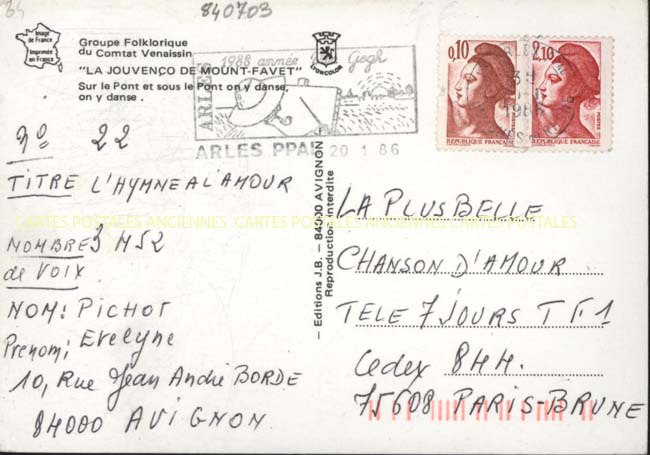 84
840703
Image
de France
Imprimée
en France
Groupe Folklorique
du Comtat Venaissin
"LA JOUVENÇO DE MOUNT-FAVET"
Sur le Pont et sous le Pont on y danse,
on y danse .
YVONCOLOR
ARLES
1988 année Van Gogh
ARLES PPAL 20 1 86
0,10
REPUBLIQUE FRANÇAISE
2,10
POSTES
REPUBLIQUE FRANÇAISE
No 22
TITRE L'HYMNE A L'AMOUR
NOMBRE
de VOIX
NOM: PicHot
Prenom; Evelyne
10, Rue Jean André BORDE
84000 AVIGNON
– Editions J.B. – 84000 AVIGNON –
Reproduction interdite
LA PLUS BELLE
CHANSON D'AMOUR
TELE 7 JOURS TF1
Cedex 844.
75608 PARIS-BRUNE
CARTES POSTALES ANCIENNES CARTES POSTALES ANCIENNES CARTES POSTALES